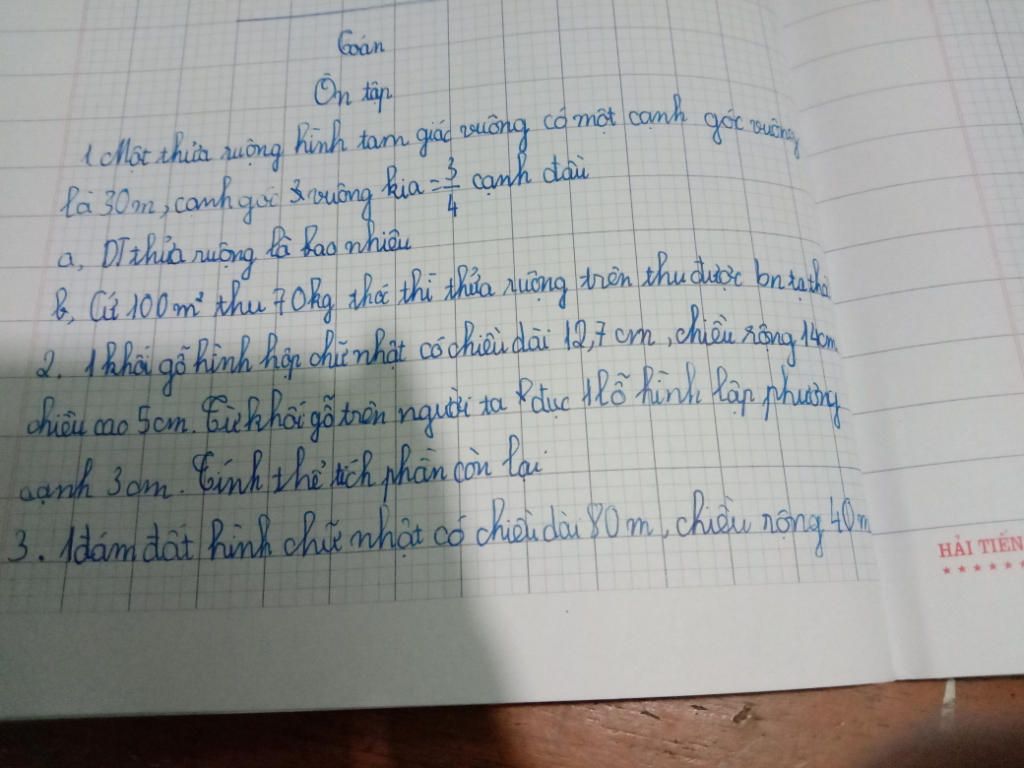 Toán
Ôn tập
1 Một thửa ruộng hình tam giác vuông có một cạnh góc vuông
là 30m, cạnh góc vuông kia = 3/4 cạnh đấu
a, DT thửa ruộng là bao nhiêu
b, Cứ 100m² thu 70kg thóc thì thửa ruộng trên thu được bn tạ thó
2. 1 khối gỗ hình hộp chữ nhật có chiều dài 12,7 cm, chiều rộng 14cm
chiều cao 5cm. Từ khối gỗ trên người ta đục 1 lỗ hình lập phương
cạnh 3cm. Tính thể tích phần còn lại
3. 1 đám đất hình chữ nhật có chiều dài 80m, chiều rộng 40m
HẢI TIẾN